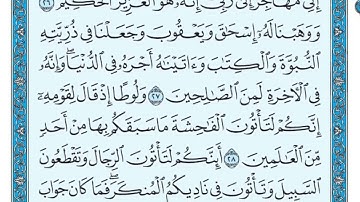 إِنِّي مُهَاجِرٌ إِلَىٰ رَبِّيٓ إِنَّهُۥ هُوَ ٱلْعَزِيزُ ٱلْحَكِيمُ ٢٦
وَوَهَبْنَا لَهُۥٓ إِسْحَٰقَ وَيَعْقُوبَ وَجَعَلْنَا فِي ذُرِّيَّتِهِ
ٱلنُّبُوَّةَ وَٱلْكِتَٰبَ وَءَاتَيْنَٰهُ أَجْرَهُۥ فِي ٱلدُّنْيَا ۖ وَإِنَّهُۥ
فِي ٱلْأٓخِرَةِ لَمِنَ ٱلصَّٰلِحِينَ ٢٧ وَلُوطًا إِذْ قَالَ لِقَوْمِهِۦٓ
إِنَّكُمْ لَتَأْتُونَ ٱلْفَٰحِشَةَ مَا سَبَقَكُم بِهَا مِنْ أَحَدٍ
مِّنَ ٱلْعَٰلَمِينَ ٢٨ أَئِنَّكُمْ لَتَأْتُونَ ٱلرِّجَالَ وَتَقْطَعُونَ
ٱلسَّبِيلَ وَتَأْتُونَ فِي نَادِيكُمُ ٱلْمُنكَرَ ۖ فَمَا كَانَ جَوَابَ